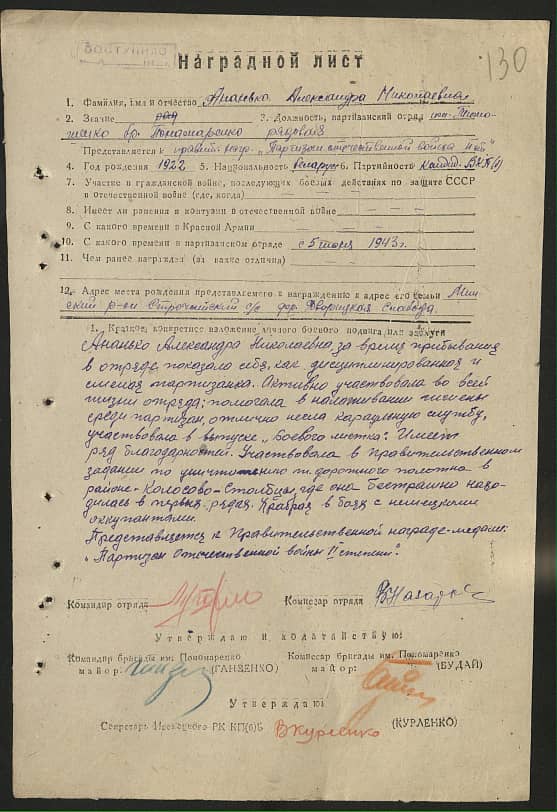 ПОСТУПИЛО
130
Наградной лист
1. Фамилия, имя и отчество Ананько Александра Николаевна
2. Звание ряд 3. Должность, партизанский отряд им. Тимо-
шенко бр. Пономаренко рядовая
Представляется к правит. нагр. „Партизан отечественной войны II ст."
4. Год рождения 1922 5. Национальность беларус. 6. Партийность Кандид. ВКП(б)
7. Участие в гражданской войне, последующих боевых действиях по защите СССР
в отечественной войне (где, когда) — — —
8. Имеет ли ранения и контузии в отечественной войне — — —
9. С какого времени в Красной Армии — — —
10. С какого времени в партизанском отряде с 5 июня 1943 г.
11. Чем ранее награжден (за какие отличия) — — —
12. Адрес места рождения представляемого к награждению и адрес его семьи Мин-
ский р-он Строчицкий с/с дер. Дворицкая Слабода.
1. Краткое, конкретное изложение личного боевого подвига или заслуги
Ананько Александра Николаевна, за время прибывания
в отряде показала себя, как дисциплинированная и
смелая партизанка. Активно участвовала во всей
жизни отряда: помогала в налаживании гигиены
среди партизан, отлично несла караульную службу,
участвовала в выпуске „Боевого листка". Имеет
ряд благодарностей. Участвовала в Правительственном
задании по уничтожению ж. дорожного полотна в
районе Колосово-Столбцы, где она бесстрашно нахо-
дилась в первых рядах. Храбрая в боях с немецкими
оккупантами.
Представляется к Правительственной награде-медали:
„Партизан Отечественной войны II степени".
Командир отряда Комиссар отряда
Утверждаю и ходатайствую:
Командир бригады им. Пономаренко Комиссар бригады им. Пономаренко
майор: (ГАНЗЕНКО) майор: (БУДАЙ)
Утверждаю
Секретарь РК КП(б)Б В Курленко (КУРЛЕНКО)